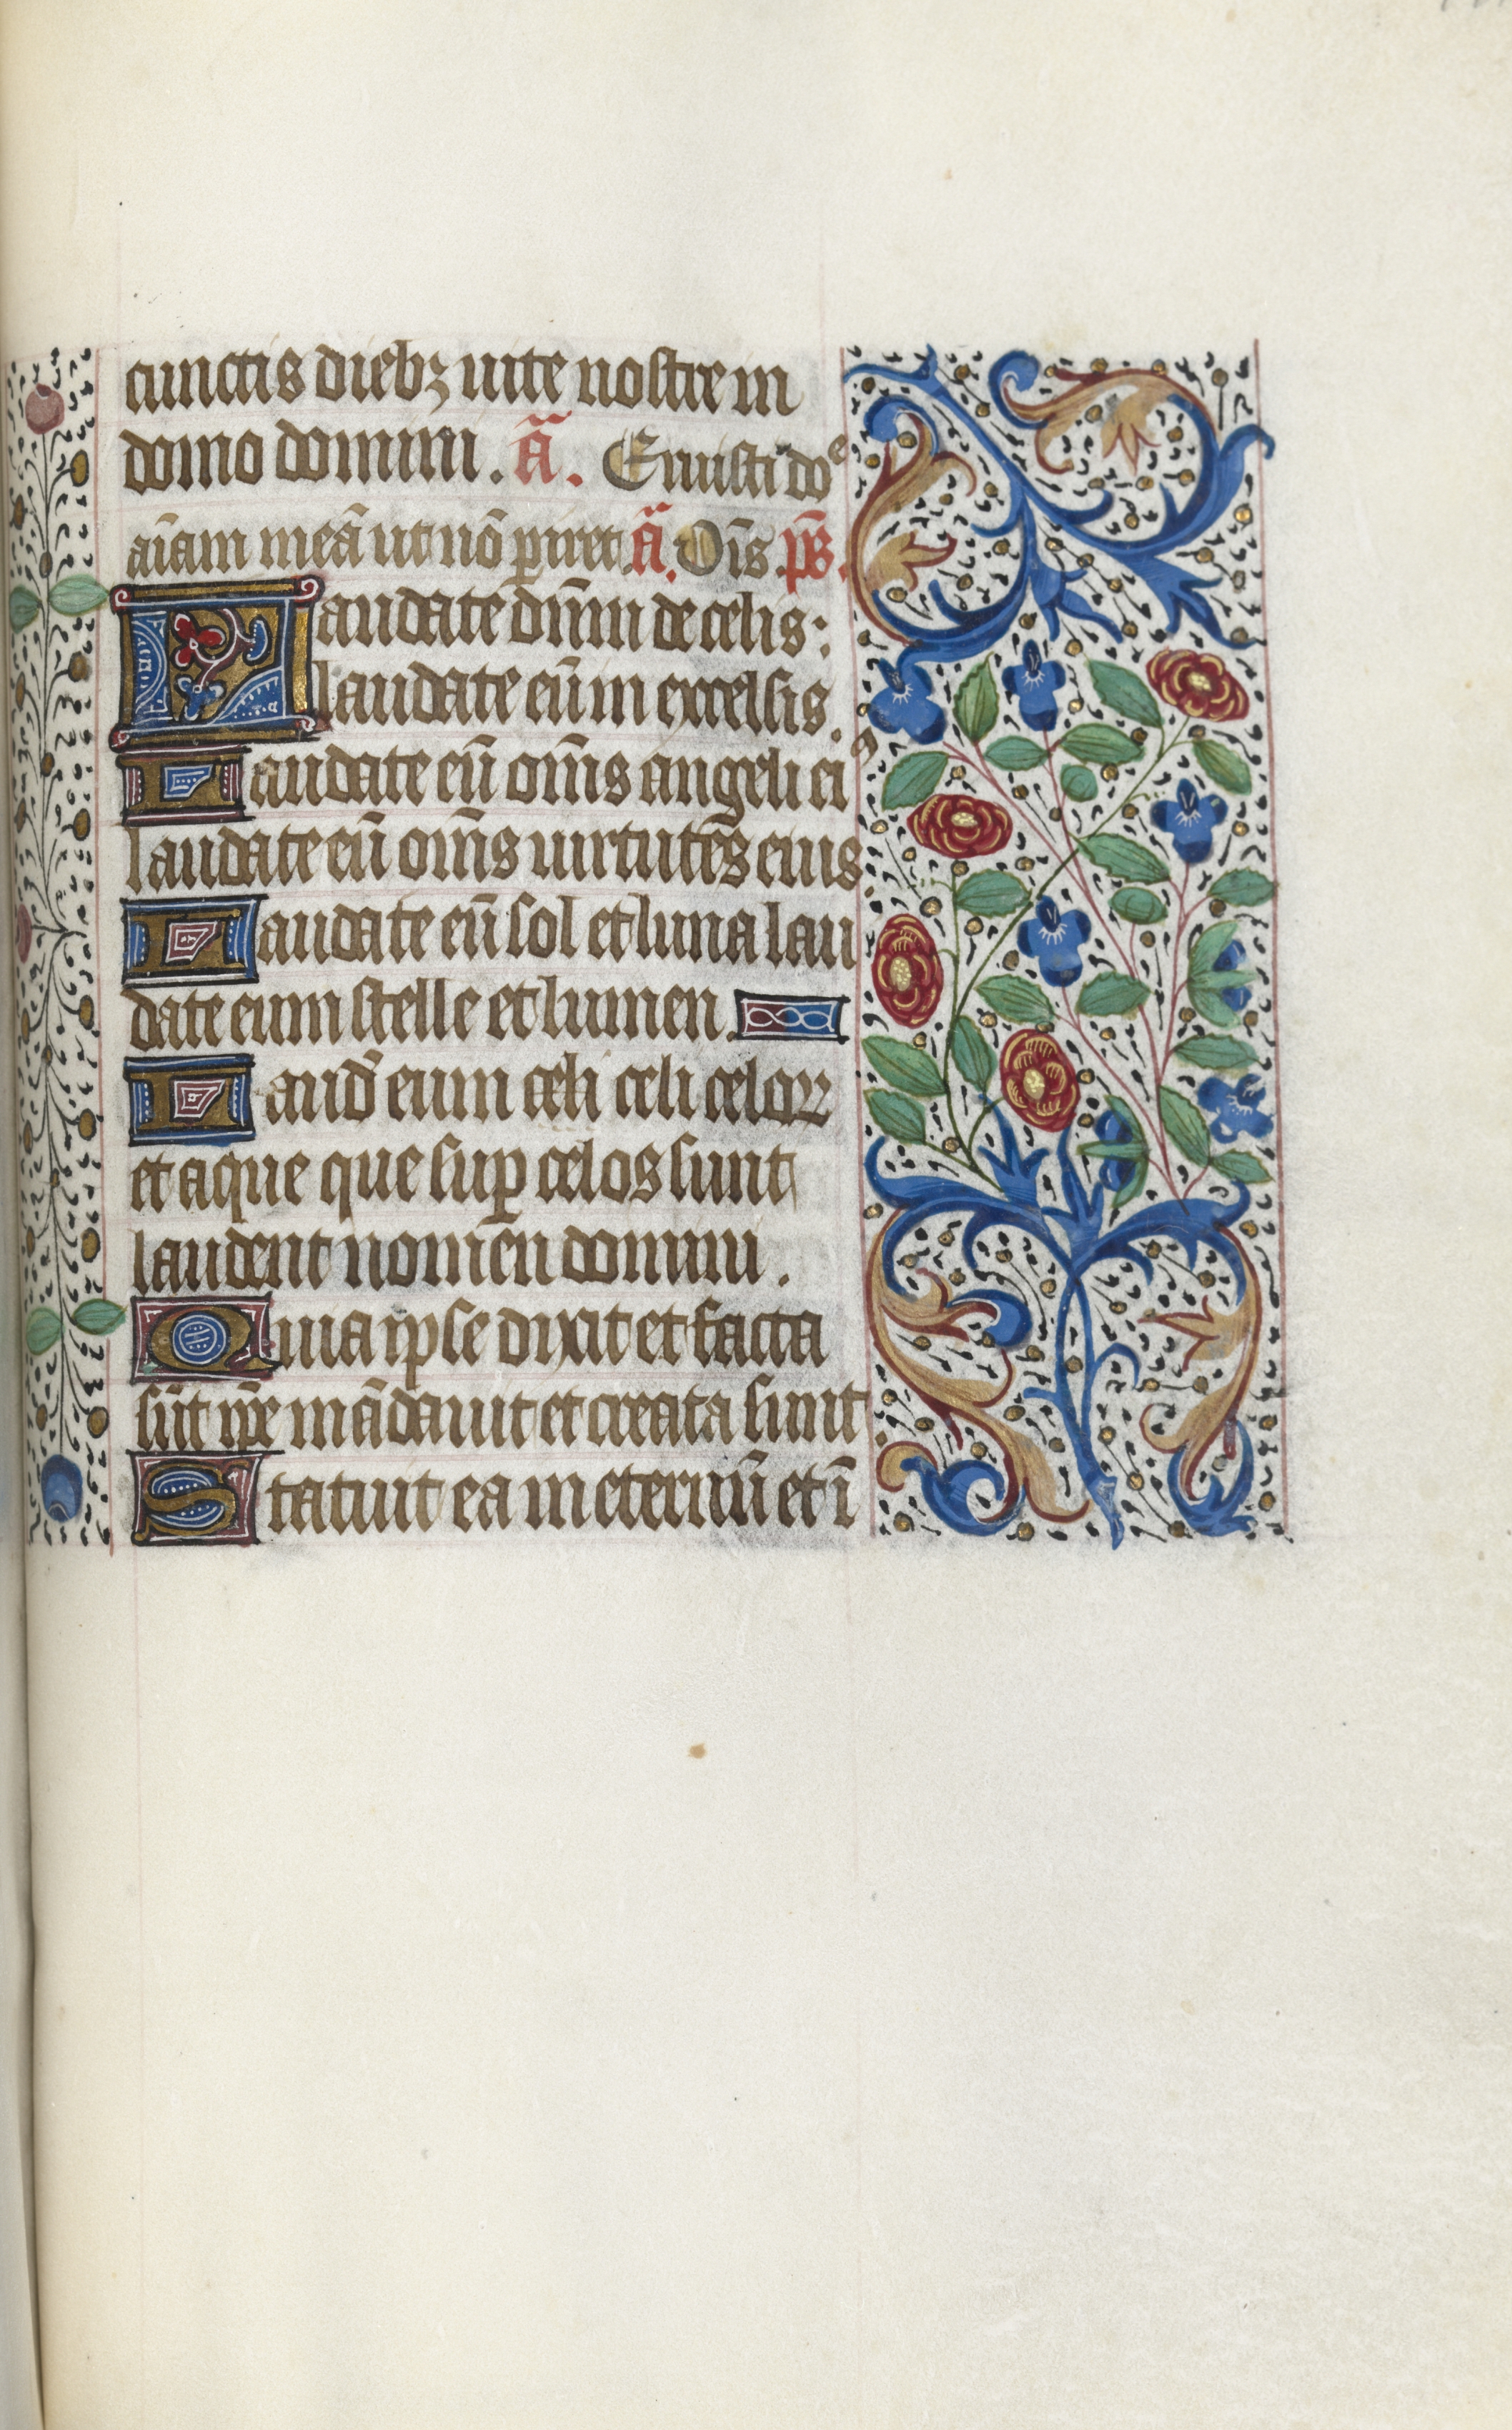 cunctis diebꝫ uite nostre in
domo domini. Ā. Eruisti doᵉ
aīam meā ut nō ꝑiret. Ā. Oīs. ps̄.
Laudate dn̄m de celis:
laudate eū in excelsis.
Laudate eū om̄s angeli eiꝰ
laudate eū om̄s uirtutes eius.
Laudate eū sol et luna lau
date eum stelle et lumen.
Laud̄ eum celi celi celoꝝ
et aque que suꝑ celos sunt
laudent nomen domini.
Quia ipse dixit et facta
sūt ip̄e mādauit et creata sunt
Statuit ea in eternū et ī